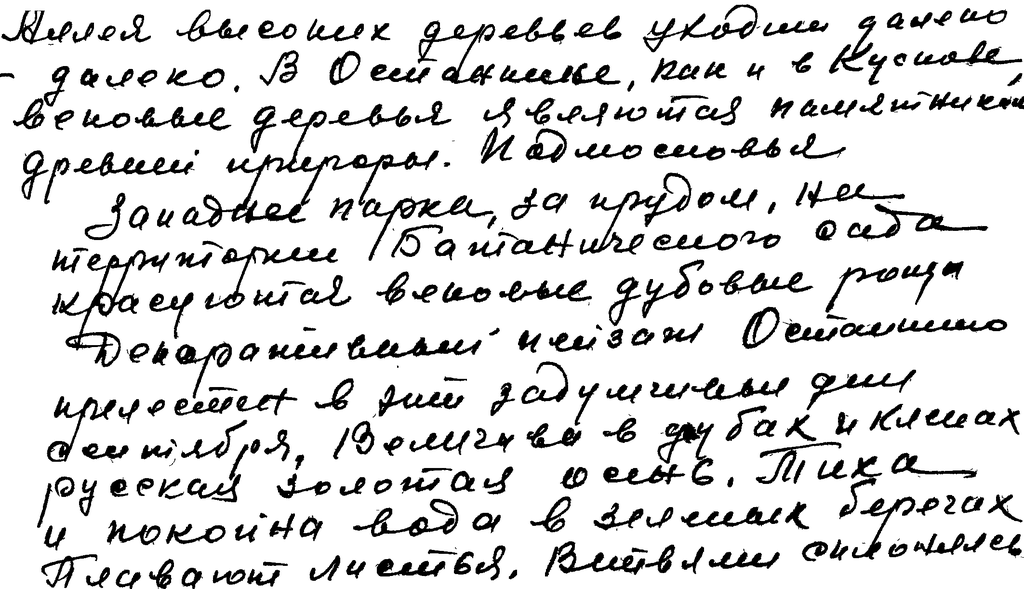 Аллея высоких деревьев уходит далеко
- далеко. В Останкине, как и в Кускове,
вековые деревья являются памятниками
древней природы. Подмосковья
Западнее парка, за прудом, на
территории Батанического сада
красуются вековые дубовые рощи
Декоративный пейзаж Останкино
прелестен в эти задумчивые дни
сентября. Величава в дубах и кленах
русская золотая осень. Тиха
и покойна вода в зеленых берегах
Плавают листья. Ветвями склонясь